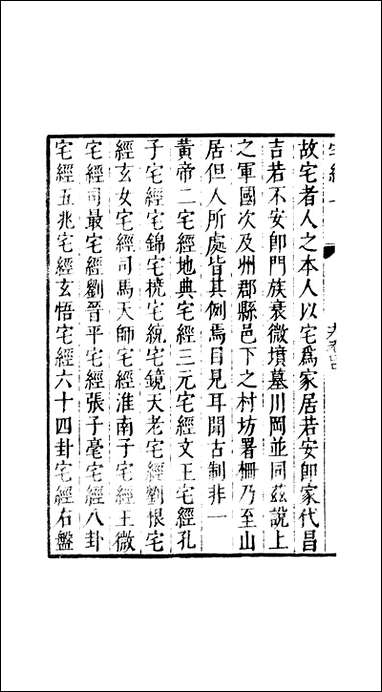 故宅者人之本人以宅爲家居若安卽家代昌
吉若不安卽門族衰微墳墓川岡並同兹說上
之軍國次及州郡縣邑下之村坊署柵乃至山
居但人所處皆其例焉目見耳聞古制非一
黃帝二宅經地典宅經三元宅經文王宅經孔
子宅經宅錦宅撓宅統宅鏡天老宅經劉根宅
經玄女宅經司馬天師宅經淮南子宅經王微
宅經司最宅經劉晉平宅經張子毫宅經八卦
宅經五兆宅經玄悟宅經六十四卦宅經右盤